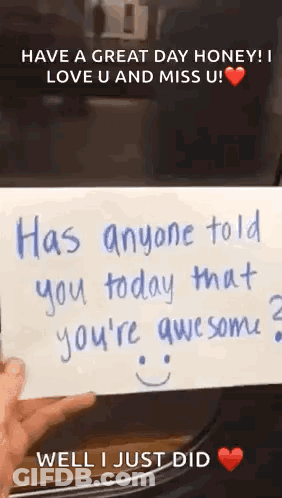 HAVE A GREAT DAY HONEY! I
LOVE U AND MISS U!❤️
Has anyone told
you today that
you're awesome?
WELL I JUST DID ❤️
GIFDB.com